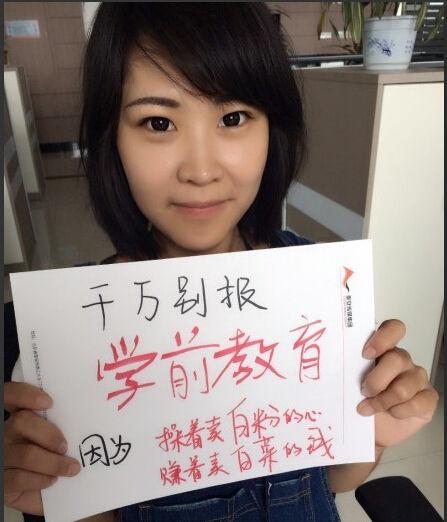 千万别报
学前教育
因为 操着卖白粉的心
赚着卖白菜的钱